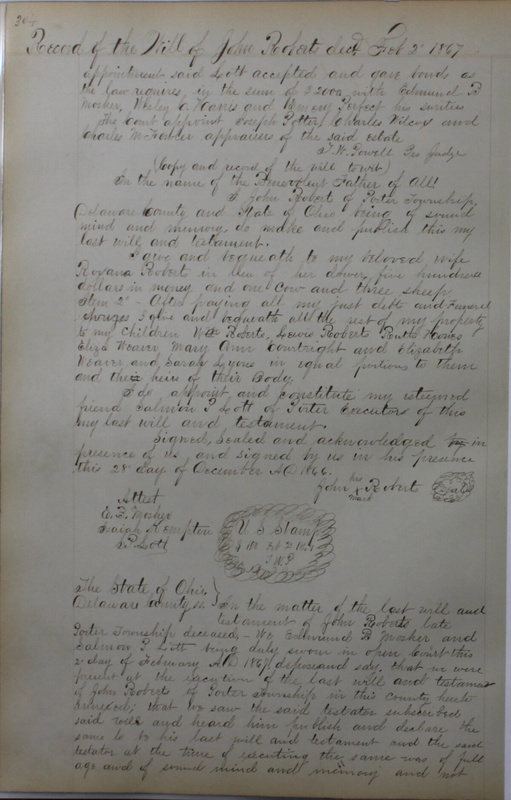 304
Record of the Will of John Roberts decd. Feb 2d 1867
appointment said Lott accepted and gave bonds as
the law requires, in the sum of $2000, with Edmund B
Mosher, Wesley C. and Emery Perfect his surities
The Court appoint Joseph Potter, Charles Wilcox and
Charles McKestler appraisers of the said estate
T. W. Powell Pro Judge
(Copy and record of the will to wit)
In the name of the Benevolent Father of All!
I John Robert of Porter Township
Delaware County and State of Ohio being of sound
mind and memory do make and publish this my
last will and testament.
I give and begneath to my beloved wife
Roxana Roberts in lieu of her dower, five hundred
dollars in money and one Cow and three sheep
Item 2d - After paying all my just debt and Funeral
charges I give and begneath all the rest of my property
to my Children Wm Roberts, Lewis Roberts Ruth
Eliza Weaver Mary Ann Courtright and Elizabeth
Weaver and Sarah Lyons in equal portions to them
and their heirs of their Body.
I do appoint and constitute my esteemed
friend Salmon P Lott of Porter Executors of this
my last will and testament.
Signed, Sealed and acknowledged in
presence of us and signed by us in his presence
this 28 day of December AD 1866.
John his X mark Robert Seal
Attest
E. B. Mosher
Isaiah Kempton
S P Lott
U S Stamp
The State of Ohio
Delaware County, ss } In the matter of the last will and
testament of John Roberts late
Porter Township deceased - We Edmund B Mosher and
Salmon P Lott being duly sworn in open Court this
2d day of February AD 1867 depose and say, that we were
present at the execution of the last will and testament
of John Roberts of Porter Township in this County hereto
annexed; that we saw the said testator subscribed
said will and heard him publish and declare the
same to be his last will and testament and the said
testator at the time of executing the same was of full
age and of sound mind and memory and not